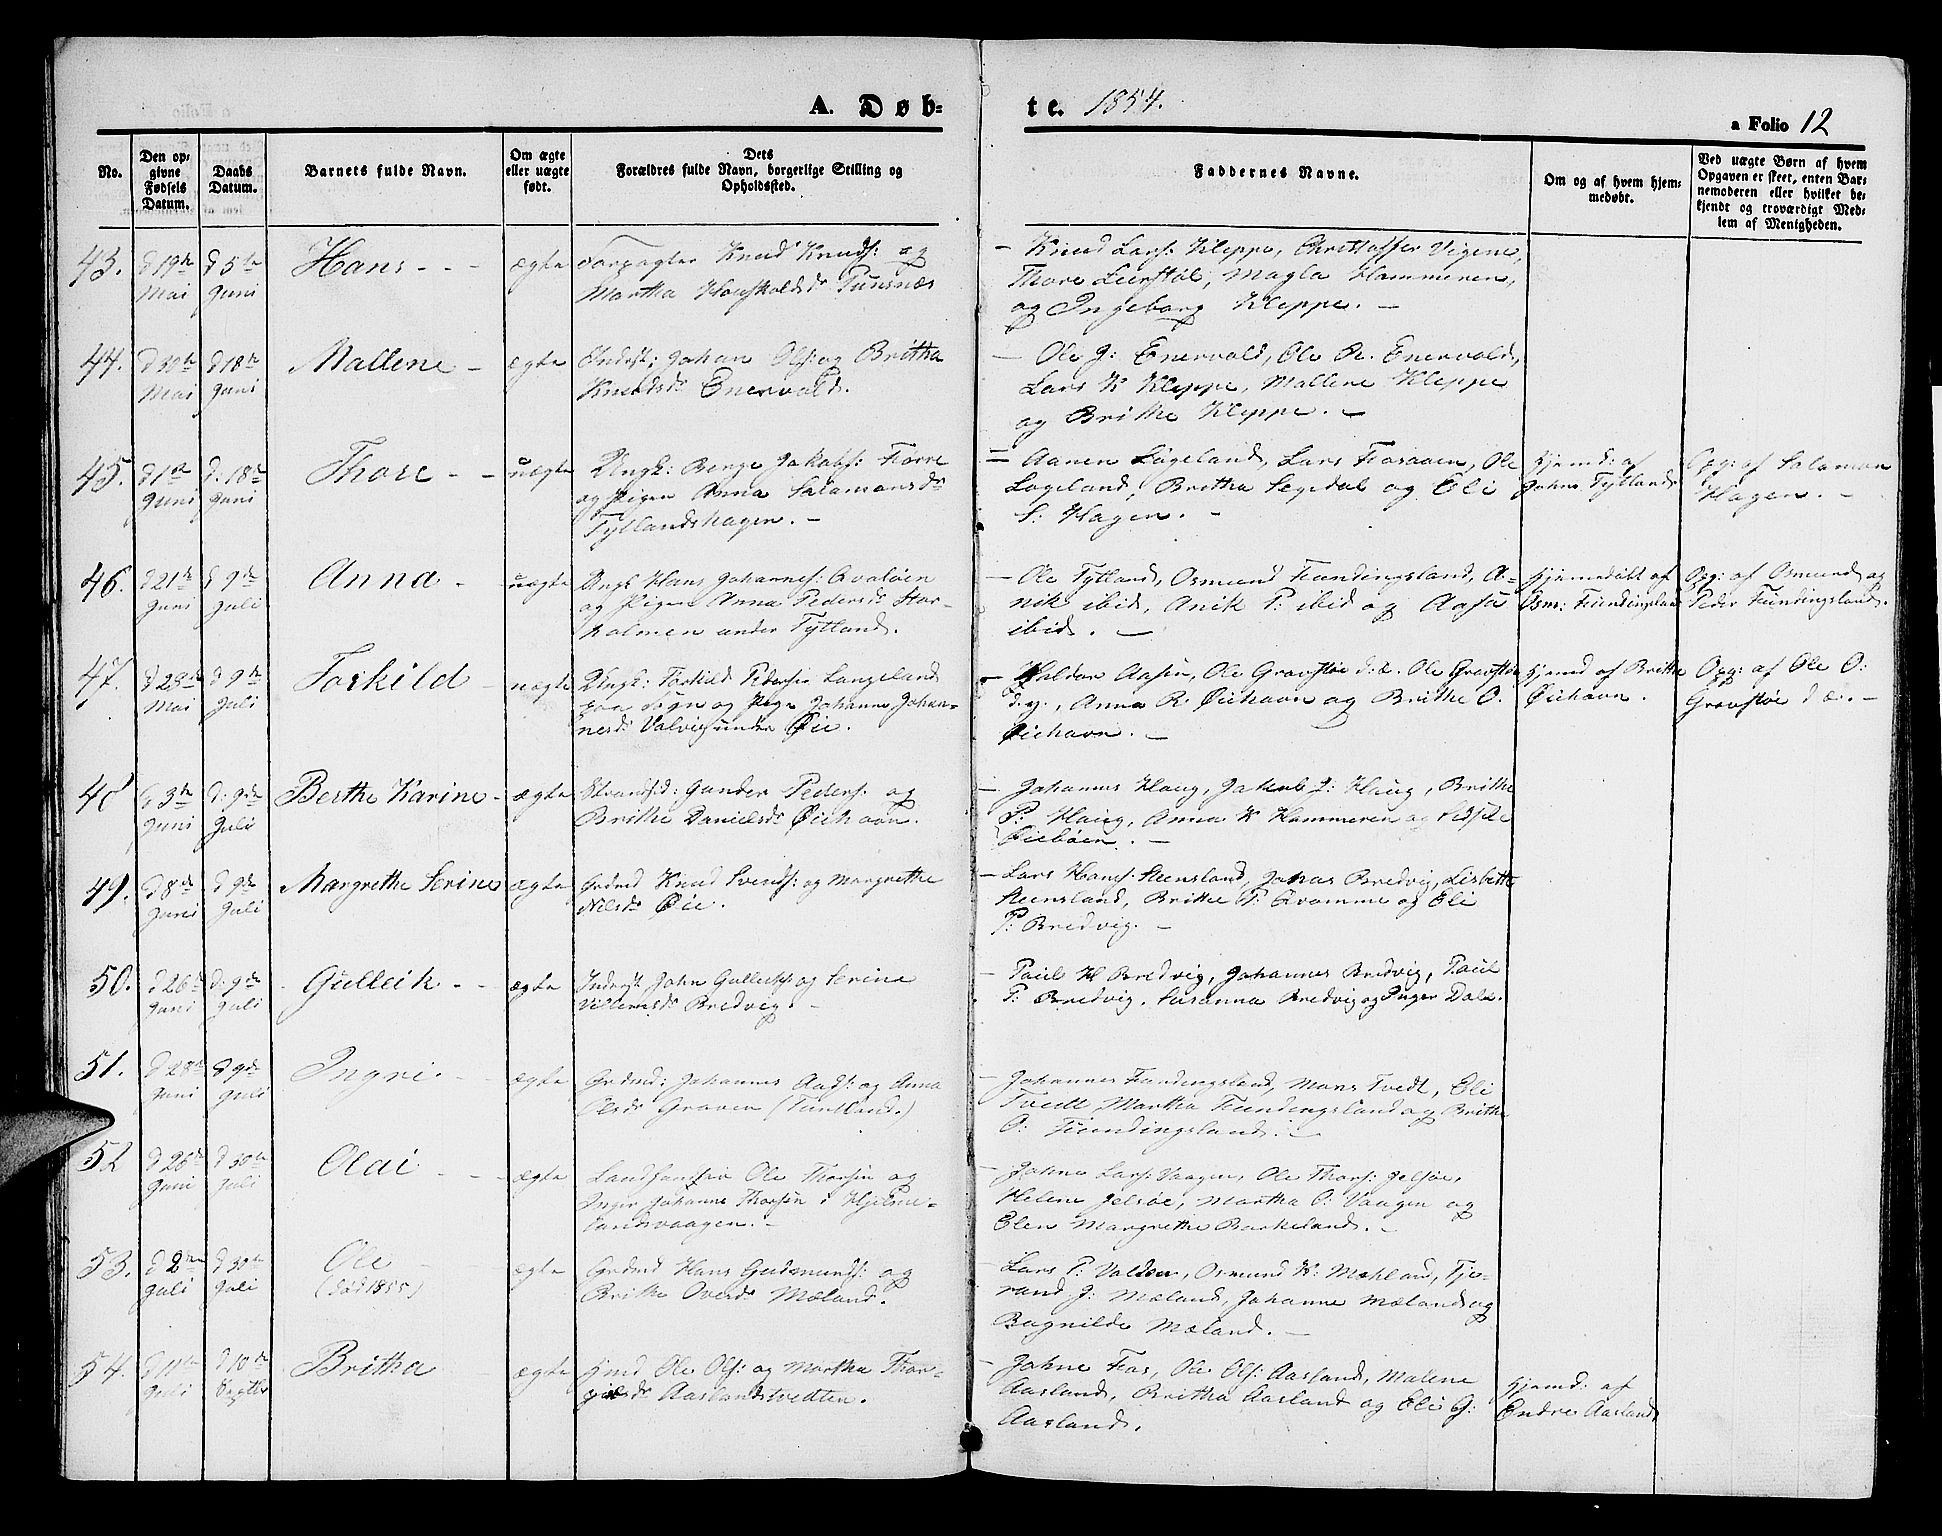 A. Døb=
te. 1854.
a Folio 12
No.
Den op=
givne
Fødsels
Datum.
Daabs
Datum.
Barnets fulde Navn.
Om ægte
eller uægte
født.
Dets
Forældres fulde Navn, borgerlige Stilling og
Opholdssted.
Faddernes Navne.
Om og af hvem hjem=
medøbt.
Ved uægte Børn af hvem
Opgaven er skeet, enten Bar=
nemoderen eller hvilket be=
kjendt og troværdigt Med=
lem af Menigheden.
43. d 19de d 5te Hans - - - ægte Forpagter Knud Knuds: og
Mai Juni Martha
— Knud Lars: Kleppe, Christoffer Vigene,
Thore Leirstøl, Magla Hammeren,
og Ingeborg Kleppe. —
44. d 30te d 18de Mallene - ægte Inderst: Johan Ols: og Britha
Mai Juni Knudsd: Enervold.
— Ole J: Enervold, Ole R. Enervold,
Lars K Kleppe, Mallene Kleppe
og Brithe Kleppe. —
45. d 1ste d. 18de Thore - - uægte Ungk: Børge Jakobs: Førre
Juni Juni og Pigen Anna Salamonsd:
Tytlandshagen. —
— Aanen Løgeland, Lars Fosaaen, Ole
Løgeland, Britha Segedal og Eli
S: Hagen. —
Hjemd: af
Johns Tytland
Opg: af Salamon
Hagen. —
46. d 21de d 9de Anna - uægte Ungk Hans Johannes: Qvaløen
Juni Juli og Pigen Anna Pedersd: Stor-
holmen under Tytland.
— Ole Tytland, Osmund Fundingsland, A-
nik ibid, Anik P: ibid og Aasa
ibid. —
Hjemmedøbt af
Osm: Fundingsland
Opg: af Osmund og
Peder Fundingsland.
47. d 29de d 9de Torkild - uægte Ungk: Torkild Pedersen Langeland
Mai Juli fra Sogn og Pige Johanna Johan-
nesd: Valvig under Øie.
— Haldor Aasen, Ole Gravstøe d.æ. Ole Gravstøe
d.y., Anna R. Øiehavn og Brithe O.
Øiehavn. —
Hjemd af Brithe
Øiehavn.
Opg: af Ole O:
Gravstøe d æ. —
48 d 3de d. 9de Berthe Karine - ægte Strands: Gunder Peders: og
Juni Juli Brithe Danielsd: Øiehavn.
— Johannes Haug, Jakob L: Haug, Brithe
P: Haug, Anna K Hammeren og
Øiebøen. —
49. d 8de d 9de Margrethe Serine ægte Grdmd Knud Svends: og Margrethe
Juni Juli Nilsd: Øie.
— Lars Hans: Steensland, Johas Bredvig, Lisbeth
Steensland, Brithe T: Qvamme og Eli
P: Bredvig. —
50. d 26de d. 9de - Gulleik - - ægte Inderst John Gulleiks og Serine
Juni Juli Villemsd: Bredvig. —
— Paul H Bredvig, Johannes Bredvig, Paul
P: Bredvig, Susanna Bredvig og Inger Dale.
51. d 28de d 9de Ingri. - - ægte Grdmd: Johannes Aads: og Anna
Juni Juli Olsd: Graven (Tuntland.)
— Johannes Fundingsland, Mons Tvedt, Eli
Tvedt, Martha Fundingsland og Brithe
O: Fundingsland. —
52 d 26de d 30te Olai - - ægte Landhandler Ole Thorsen og
Juni Juli Inger Johanne Thorsen i Hjelme-
landsvaagen. —
— Johne Lars: Vaagen, Ole Thors: Jelsøe,
Helene Jelsøe, Martha O: Vaagen og
Elen Margrethe Barkeland. —
53. d 2den d 30te Ole - ægte Grdmd Hans Gudmunds: og
Juli Juli (død 1855) Brithe Oversd: Mæland.
— Lars P: Valden, Osmund K: Mæhland, Tjø-
rand J: Mæland, Johanne Mæland og
Bagnilde Mæland. —
54. d 11te d 10de Britha - ægte Hmd Ole Ols: og Martha Thor-
Juli Septbr gilsd: Aaslandstvedten.
— Johne Fos, Ole Ols: Aasland, Malene
Aasland, Britha Aasland og Eli J:
Aasland.
Hjemd: af
Endre Aasland,